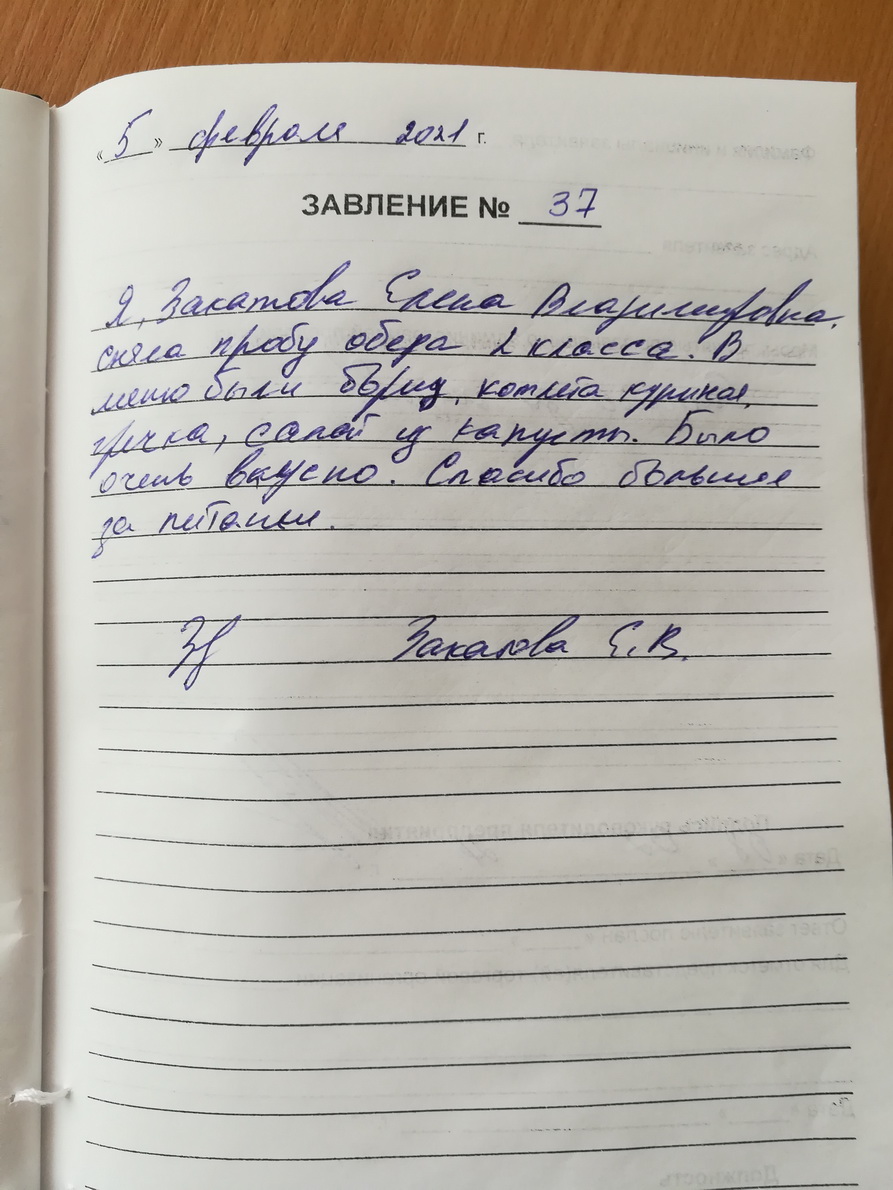 « 5 » февраля 2021 г.
ЗАВЛЕНИЕ № 37
Я, Закатова Елена Владимировна,
сняла пробу обеда 2 класса. В
меню были борщ, котлета куриная,
гречка, салат из капусты. Было
очень вкусно. Спасибо большое
за питание.
Закатова Е.В.